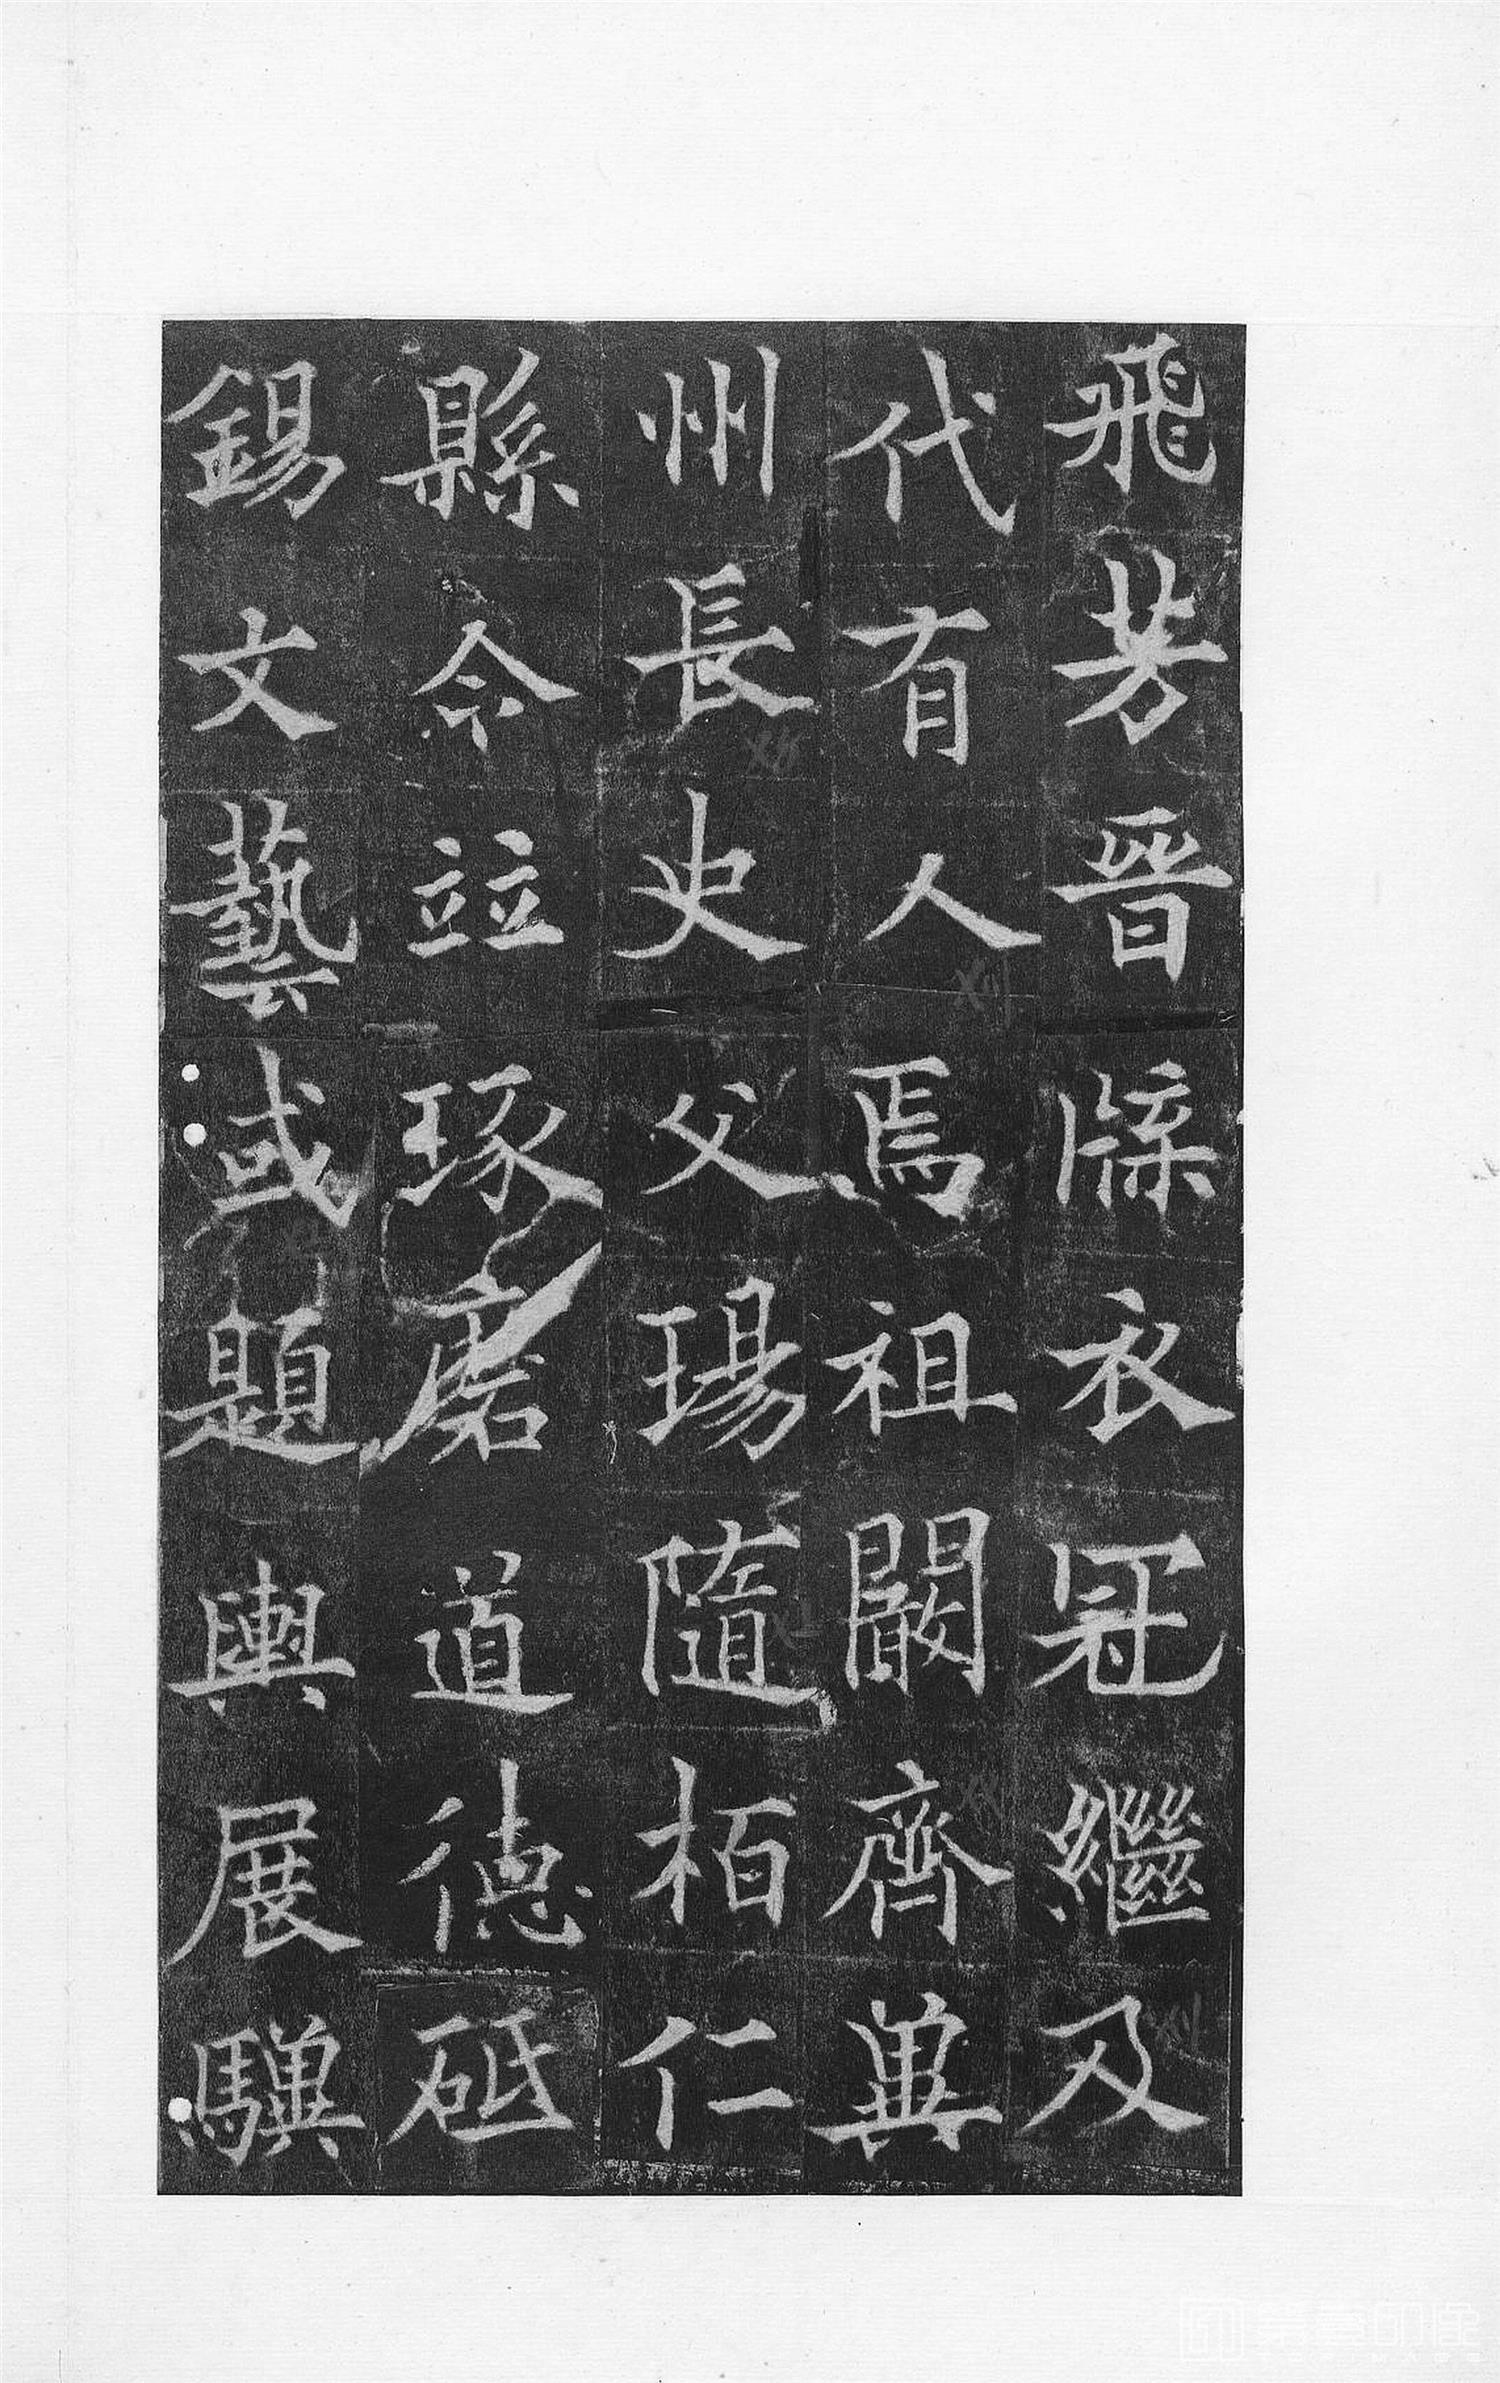 飛芳晉牒衣冠繼及
代有人焉祖闞齊兾
州長史父瑒隨栢仁
縣令竝琢磨道德砥
錫文藝或題輿展驥